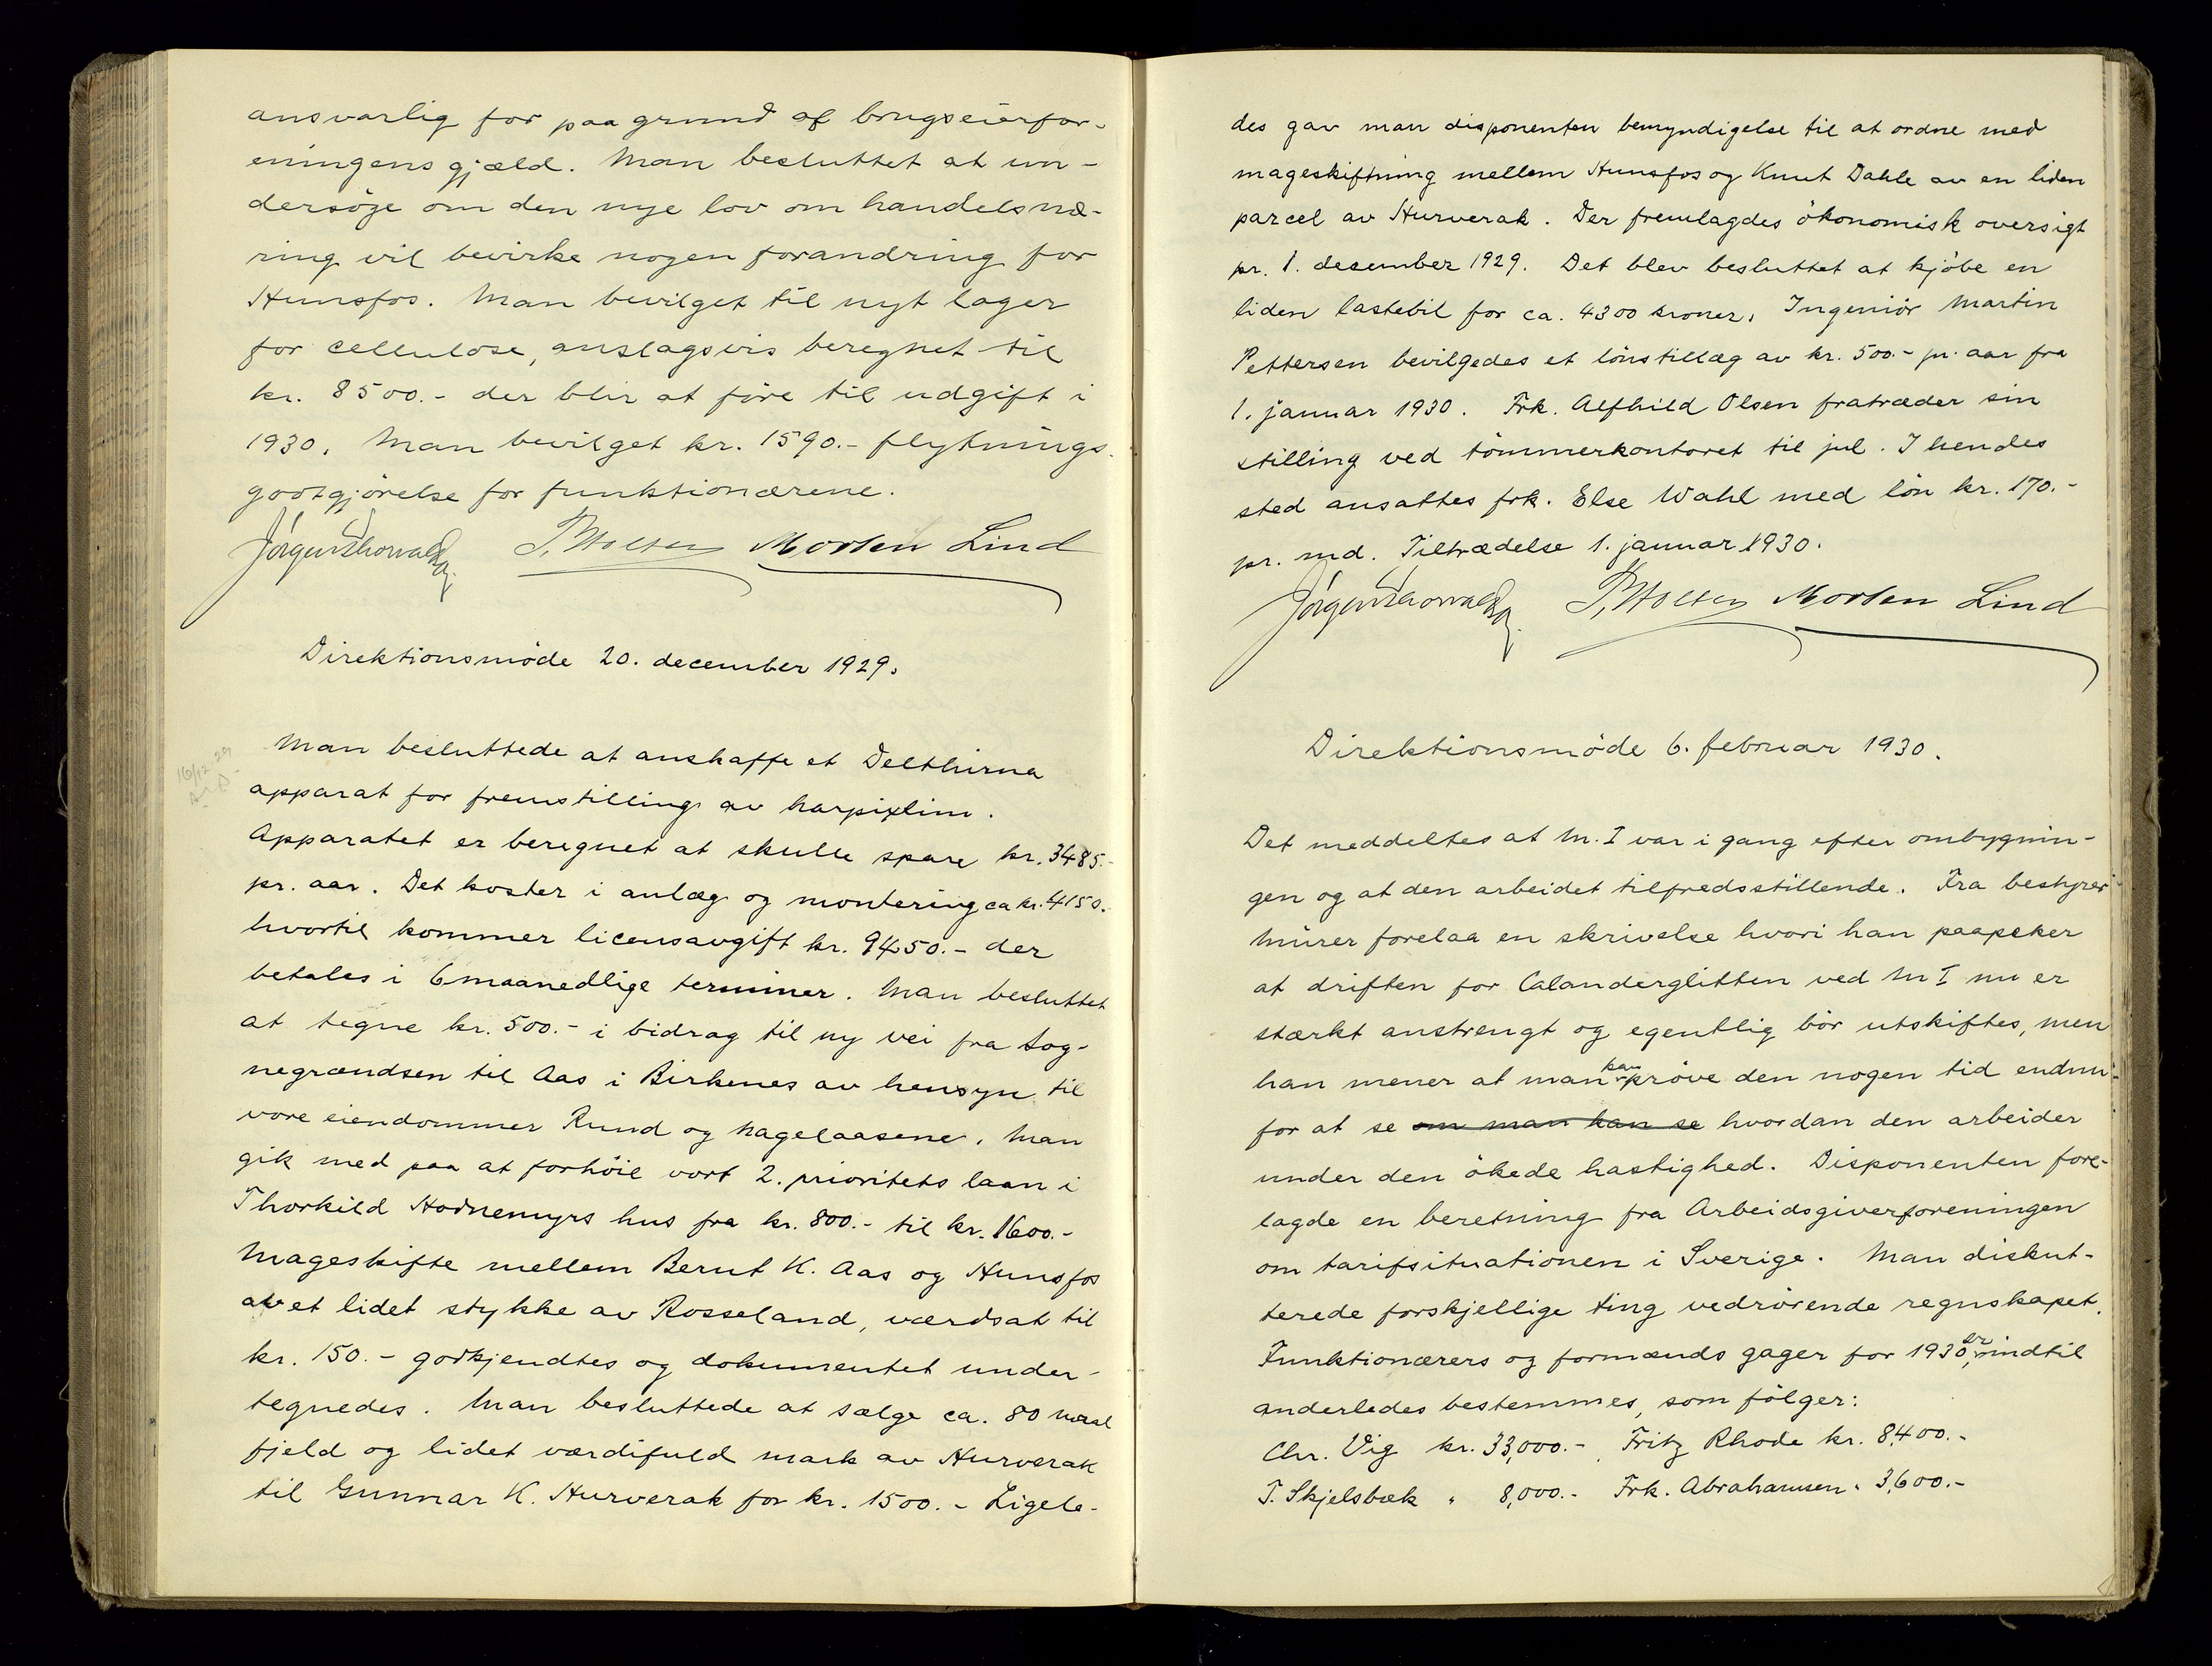 ansvarlig for paa grund af brugseierfor-
eningens gjæld. Man besluttet at un-
dersöge om den nye lov om handelsnæ-
ring vil bevirke nogen forandring for
Hunsfos. Man bevilget til nyt lager
for cellulose, anslagsvis beregnet til
kr. 8500.- der blir at före til udgift i
1930. Man bevilget kr. 1590.- flytnings-
godtgjörelse for funktionærene.
Morten Lind
Direktionsmöde 20. december 1929.
16/12-29
Man besluttede at anskaffe et Delthirna
apparat for fremstilling av harpixlim.
Apparatet er beregnet at skulle spare kr. 3485.-
pr. aar. Det koster i anlæg og montering ca kr. 4150.
hvortil kommer licensavgift kr. 9450.- der
betales i 6 maanedlige terminer. Man besluttet
at tegne kr. 500.- i bidrag til ny vei fra Sog-
negrændsen til Aas i Birkenes av hensyn til
vore eiendommer Rund og Hagelaasene. Man
gik med paa at forhöie vort 2. prioritets laan i
Thorkild Hodnemyrs hus fra kr. 800.- til kr. 1600.-
Mageskifte mellem Bernt K. Aas og Hunsfos
av et lidet stykke av Rosseland, værdsat til
kr. 150.- godkjendtes og dokumentet under-
tegnedes. Man besluttede at sælge ca. 80 maal
fjeld og lidet værdifuld mark av Hurverak
til Gunnar K. Hurverak for kr. 1500.- Ligele-
des gav man disponenten bemyndigelse til at ordne med
mageskiftning mellem Hunsfos og Knut Dahle av en liden
parcel av Hurverak. Der fremlagdes ökonomisk oversigt
pr. 1. december 1929. Det blev besluttet at kjöbe en
liden lastebil for ca. 4300 kroner. Ingeniör Martin
Pettersen bevilgedes et lönstillæg av kr. 500.- pr. aar fra
1. januar 1930. Frk. Alfhild Olsen fratræder sin
stilling ved tömmerkontoret til jul. I hendes
sted ansattes frk. Else Wahl med lön kr. 170.-
pr. md. Tiltrædelse 1. januar 1930.
Morten Lind
Direktionsmöde 6. februar 1930.
Det meddeltes at M. I var i gang efter ombygnin-
gen og at den arbeidet tilfredsstillende. Fra bestyrer
Mürer forelaa en skrivelse hvori han paapeker
at driften for Calanderglitten ved M I nu er
stærkt anstrengt og egentlig bör utskiftes, men
han mener at man kan pröve den nogen tid endnu
for at se om man kan se hvordan den arbeider
under den ökede hastighed. Disponenten fore-
lagde en beretning fra Arbeidsgiverforeningen
om tarifsituationen i Sverige. Man diskut-
terede forskjellige ting vedrörende regnskapet.
Funktionærers og formænds gager for 1930 er, indtil
anderledes bestemmes, som fölger:
Chr. Vig kr. 33,000.- Fritz Rhode kr. 8,400.-
T. Skjelsbæk " 8,000.- Frk. Abrahamsen " 3,600.-